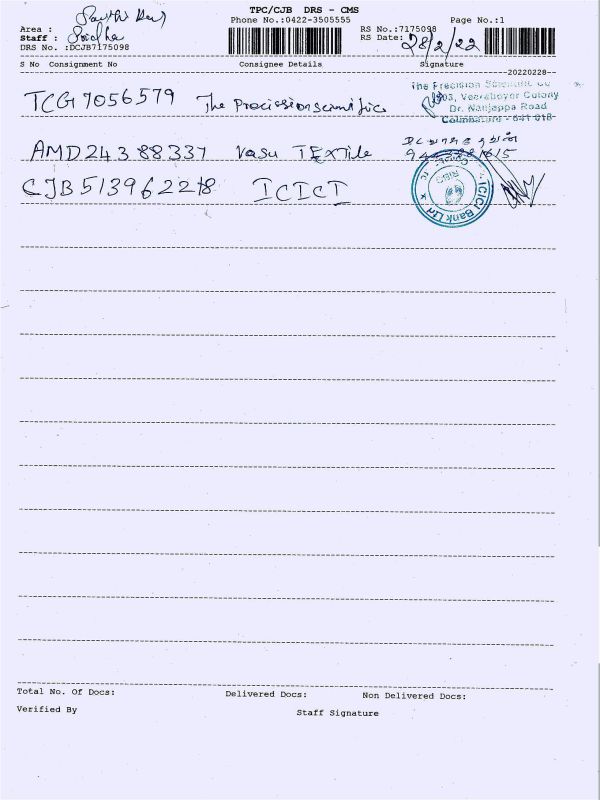 TPC/CJB DRS - CMS
Phone No.:0422-3505555 Page No.:1
Area :
Staff :
DRS No. :DCJB7175098
RS No.:7175098
RS Date: 28/2/22
S No Consignment No Consignee Details Signature
--20220228--
TCG7056579 The Precission scientific
The Precision Scientific Co
Dr. Nanjappa Road
Coimbatore - 641 018
AMD24388337 Vasu TEXTile
CJB513962218 ICICI
ICICI Bank Ltd
Total No. Of Docs: Delivered Docs: Non Delivered Docs:
Verified By Staff Signature